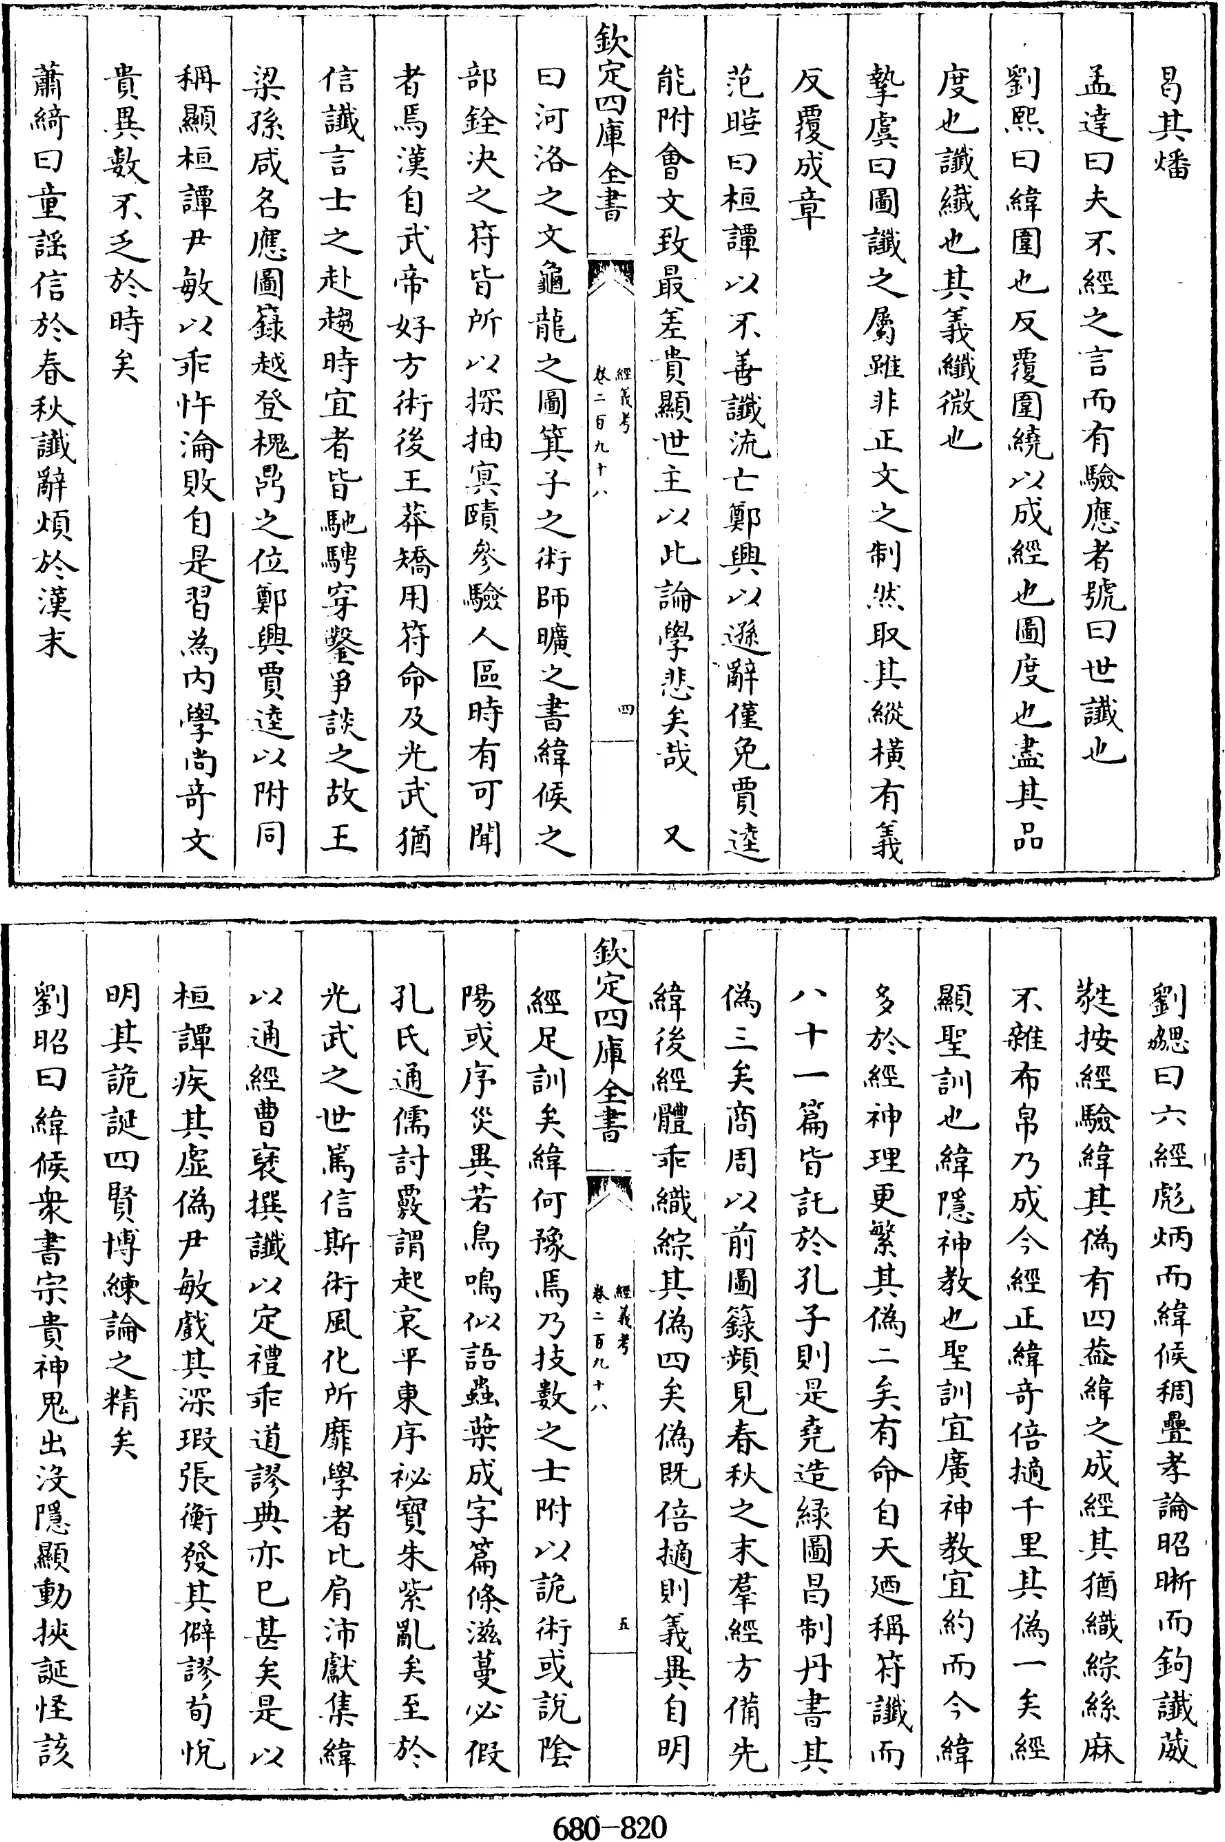 曷其燔
孟達曰夫不經之言而有驗應者號曰世讖也
劉熙曰緯圍也反覆圍繞以成經也圖度也盡其品
度也讖纖也其義纖微也
摯虞曰圖讖之屬雖非正文之制然取其縱橫有義
反覆成章
范曄曰桓譚以不善讖流亡鄭興以遜辭僅免賈逵
能附會文致最差貴顯世主以此論學悲矣哉　又
欽定四庫全書
經義考
卷二百九十八
四
曰河洛之文龜龍之圖箕子之術師曠之書緯候之
部鈐决之符皆所以探抽㝠賾參驗人區時有可聞
者焉漢自武帝好方術後王莽矯用符命及光武猶
信讖言士之赴趨時宜者皆馳騁穿鑿爭談之故王
梁孫咸名應圖籙越登槐鼎之位鄭興賈逵以附同
稱顯桓譚尹敏以乖忤淪敗自是習為内學尚竒文
貴異數不乏於時矣
蕭綺曰童謡信於春秋讖辭煩於漢末
劉勰曰六經彪炳而緯候稠疊孝論昭晰而鉤讖葳
蕤按經驗緯其偽有四葢緯之成經其猶織綜絲麻
不雜布帛乃成今經正緯竒倍擿千里其偽一矣經
顯聖訓也緯隱神教也聖訓宜廣神教宜約而今緯
多於經神理更繁其偽二矣有命自天廼稱符讖而
八十一篇皆託於孔子則是堯造緑圖昌制丹書其
偽三矣商周以前圖籙頻見春秋之末羣經方備先
緯後經體乖織綜其偽四矣偽既倍擿則義異自明
欽定四庫全書
經義考
卷二百九十八
五
經足訓矣緯何豫焉乃技數之士附以詭術或說陰
陽或序災異若鳥鳴似語蟲葉成字篇條滋蔓必假
孔氏通儒討覈謂起哀平東序祕寶朱紫亂矣至於
光武之世篤信斯術風化所靡學者比肩沛獻集緯
以通經曹襃撰讖以定禮乖道謬典亦已甚矣是以
桓譚疾其虚偽尹敏戲其深瑕張衡發其僻謬荀悅
明其詭誕四賢博練論之精矣
劉昭曰緯候衆書宗貴神鬼出沒隱顯動挾誕怪該
680-820